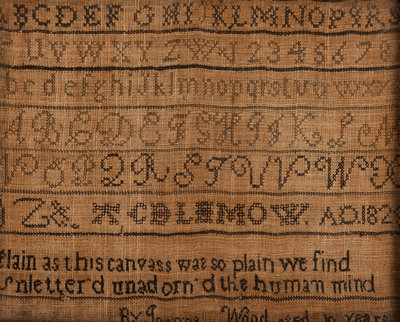 A B C D E F G H I J K L M N O P Q R S
U V W X Y Z 1 2 3 4 5 6 7 8
b c d e f g h i j k l m n o p q r s t u v w x
A B C D E F G H I J K L M
N O P Q R S T U V W X
Z & C D L M O W. A.D. 182
Plain as this canvass was so plain we find
Unletter'd unadorn'd the human mind
By Joanna Wind aged 10 years